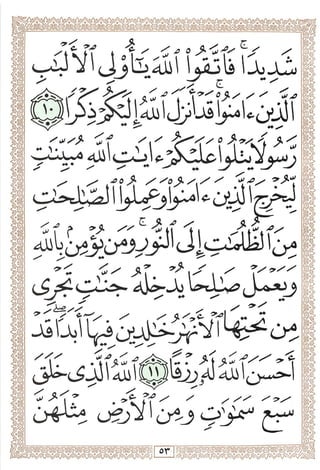 شَدِيدًا ۖ فَاتَّقُوا۟ اللَّهَ يَـٰٓأُو۟لِى الْأَلْبَـٰبِ
الَّذِينَ ءَامَنُوا۟ ۚ قَدْ أَنزَلَ اللَّهُ إِلَيْكُمْ ذِكْرًا ١٠
رَّسُولًا يَتْلُوا۟ عَلَيْكُمْ ءَايَـٰتِ اللَّهِ مُبَيِّنَـٰتٍ
لِّيُخْرِجَ الَّذِينَ ءَامَنُوا۟ وَعَمِلُوا۟ الصَّـٰلِحَـٰتِ
مِنَ الظُّلُمَـٰتِ إِلَى النُّورِ ۚ وَمَن يُؤْمِنۢ بِاللَّهِ
وَيَعْمَلْ صَـٰلِحًا يُدْخِلْهُ جَنَّـٰتٍ تَجْرِى
مِن تَحْتِهَا الْأَنْهَـٰرُ خَـٰلِدِينَ فِيهَآ أَبَدًا ۖ قَدْ
أَحْسَنَ اللَّهُ لَهُۥ رِزْقًا ١١ اللَّهُ الَّذِى خَلَقَ
سَبْعَ سَمَـٰوَٰتٍ وَمِنَ الْأَرْضِ مِثْلَهُنَّ
٥٣